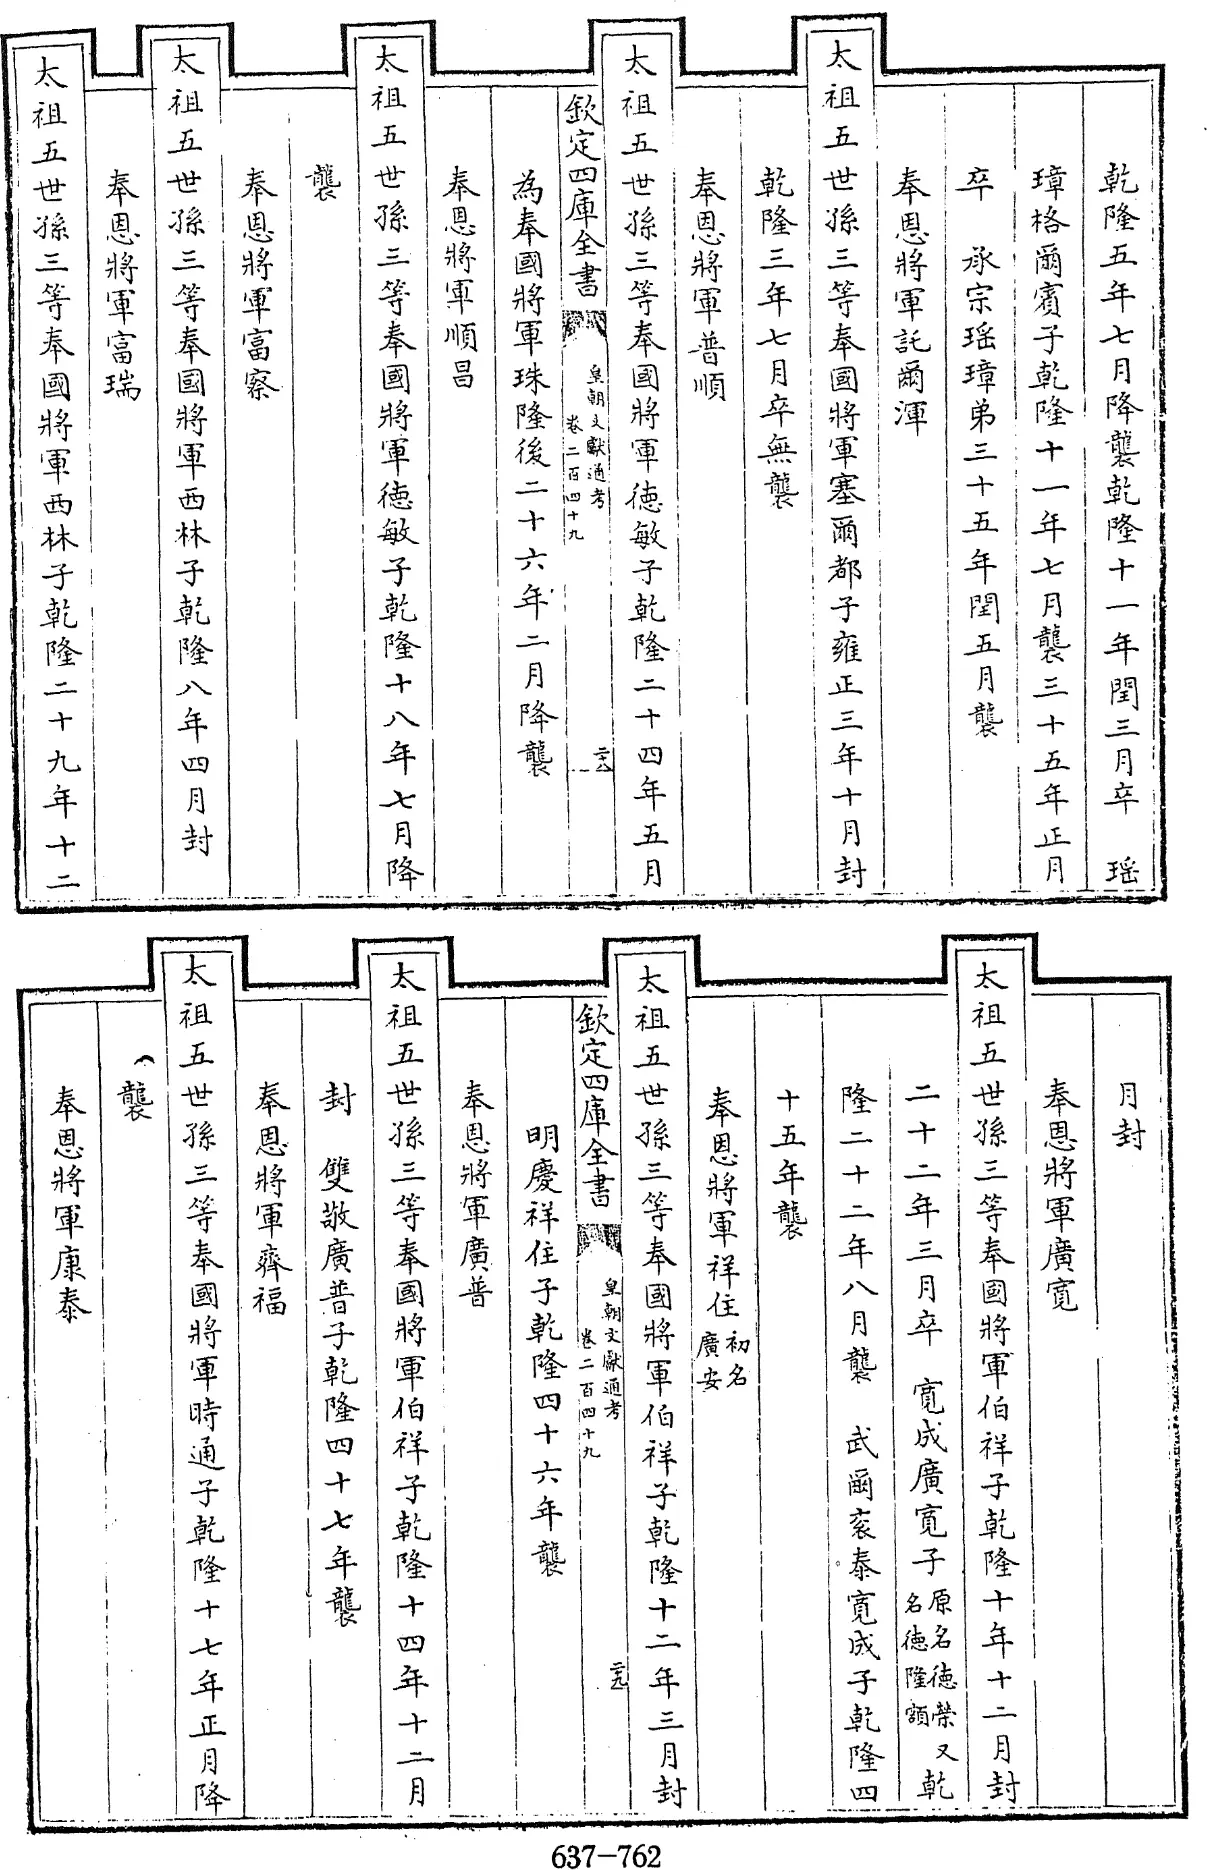 乾隆五年七月降襲乾隆十一年閏三月卒　瑶
璋格爾賓子乾隆十一年七月襲三十五年正月
卒　承宗瑶璋弟三十五年閏五月襲
奉恩將軍託爾渾
太祖五世孫三等奉國將軍塞爾都子雍正三年十月封
乾隆三年七月卒無襲
奉恩將軍普順
太祖五世孫三等奉國將軍徳敏子乾隆二十四年五月
欽定四庫全書
皇朝文獻通考
卷二百四十九
二十八
為奉國將軍珠隆後二十六年二月降襲
奉恩將軍順昌
太祖五世孫三等奉國將軍徳敏子乾隆十八年七月降
襲
奉恩將軍富察
太祖五世孫三等奉國將軍西林子乾隆八年四月封
奉恩將軍富瑞
太祖五世孫三等奉國將軍西林子乾隆二十九年十二
月封
奉恩將軍廣寛
太祖五世孫三等奉國將軍伯祥子乾隆十年十二月封
二十二年三月卒　寛成廣寛子原名徳榮又名徳隆額乾
隆二十二年八月襲　武爾衮泰寛成子乾隆四
十五年襲
奉恩將軍祥住初名廣安
太祖五世孫三等奉國將軍伯祥子乾隆十二年三月封
欽定四庫全書
皇朝文獻通考
卷二百四十九
二十九
明慶祥住子乾隆四十六年襲
奉恩將軍廣普
太祖五世孫三等奉國將軍伯祥子乾隆十四年十二月
封　雙敬廣普子乾隆四十七年襲
奉恩將軍齊福
太祖五世孫三等奉國將軍時通子乾隆十七年正月降
襲
奉恩將軍康泰
637-762